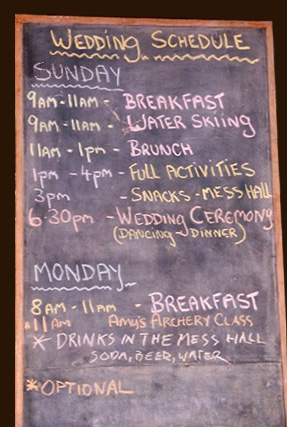 WEDDING SCHEDULE
SUNDAY
9AM-11AM - BREAKFAST
9AM-11AM - WATER SKIING
11AM - 1PM - BRUNCH
1PM - 4PM - FULL ACTIVITIES
3PM - SNACKS - MESS HALL
6.30PM - WEDDING CEREMONY
(DANCING - DINNER)
MONDAY
8AM - 11AM - BREAKFAST
*11AM AMY'S ARCHERY CLASS
* DRINKS IN THE MESS HALL
SODA, BEER, WATER
*OPTIONAL